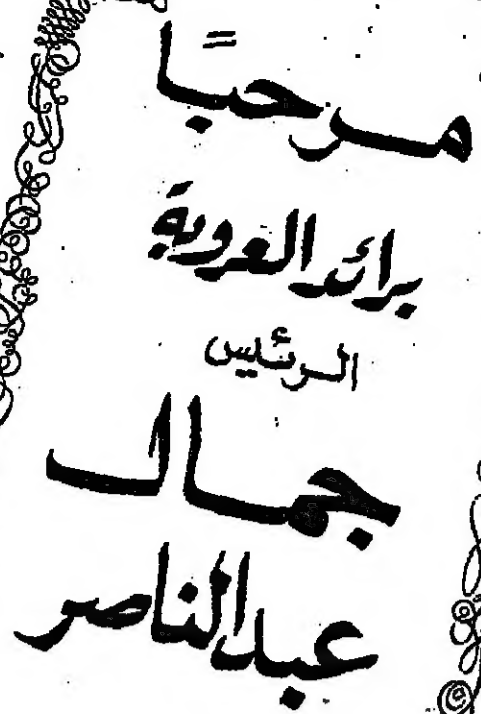 مرحبًا
برائد العروبة
الرئيس
جمال
عبد الناصر